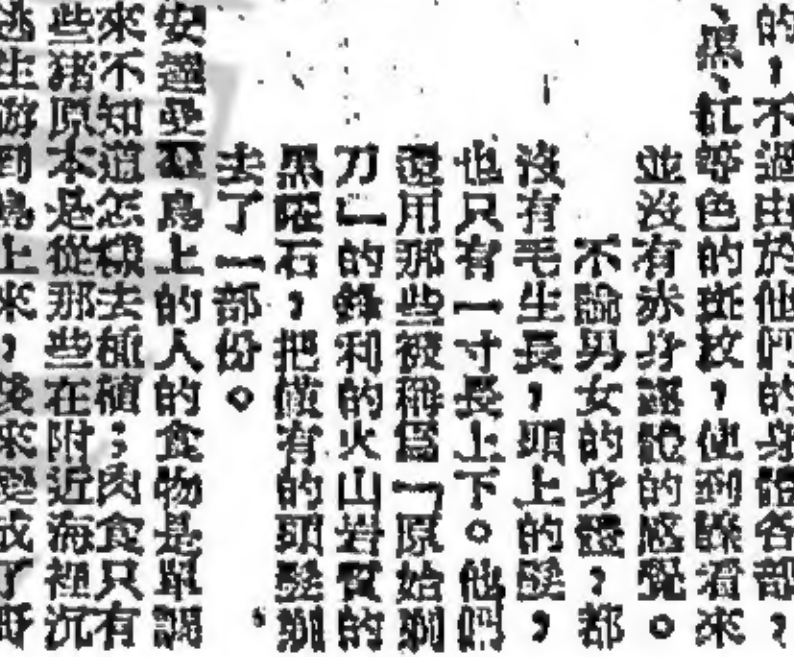 的，不過由於他們的身體各部，
、黑、紅等色的斑紋，使到睇看來
並沒有赤身露體的感覺。
不論男女的身體，都
沒有毛生長，頭上的髮，
也只有一寸長上下。他們
還用那些被稱爲「原始剃
刀」的鋒利的火山岩質的
黑曜石，把僅有的頭髮剃
去了一部份。
安達曼羣島上的人的食物是單調
來不知道怎樣去種植；肉食只有
些豬原本是從那些在附近海裡沉
逃生游到島上來，後來變成了野